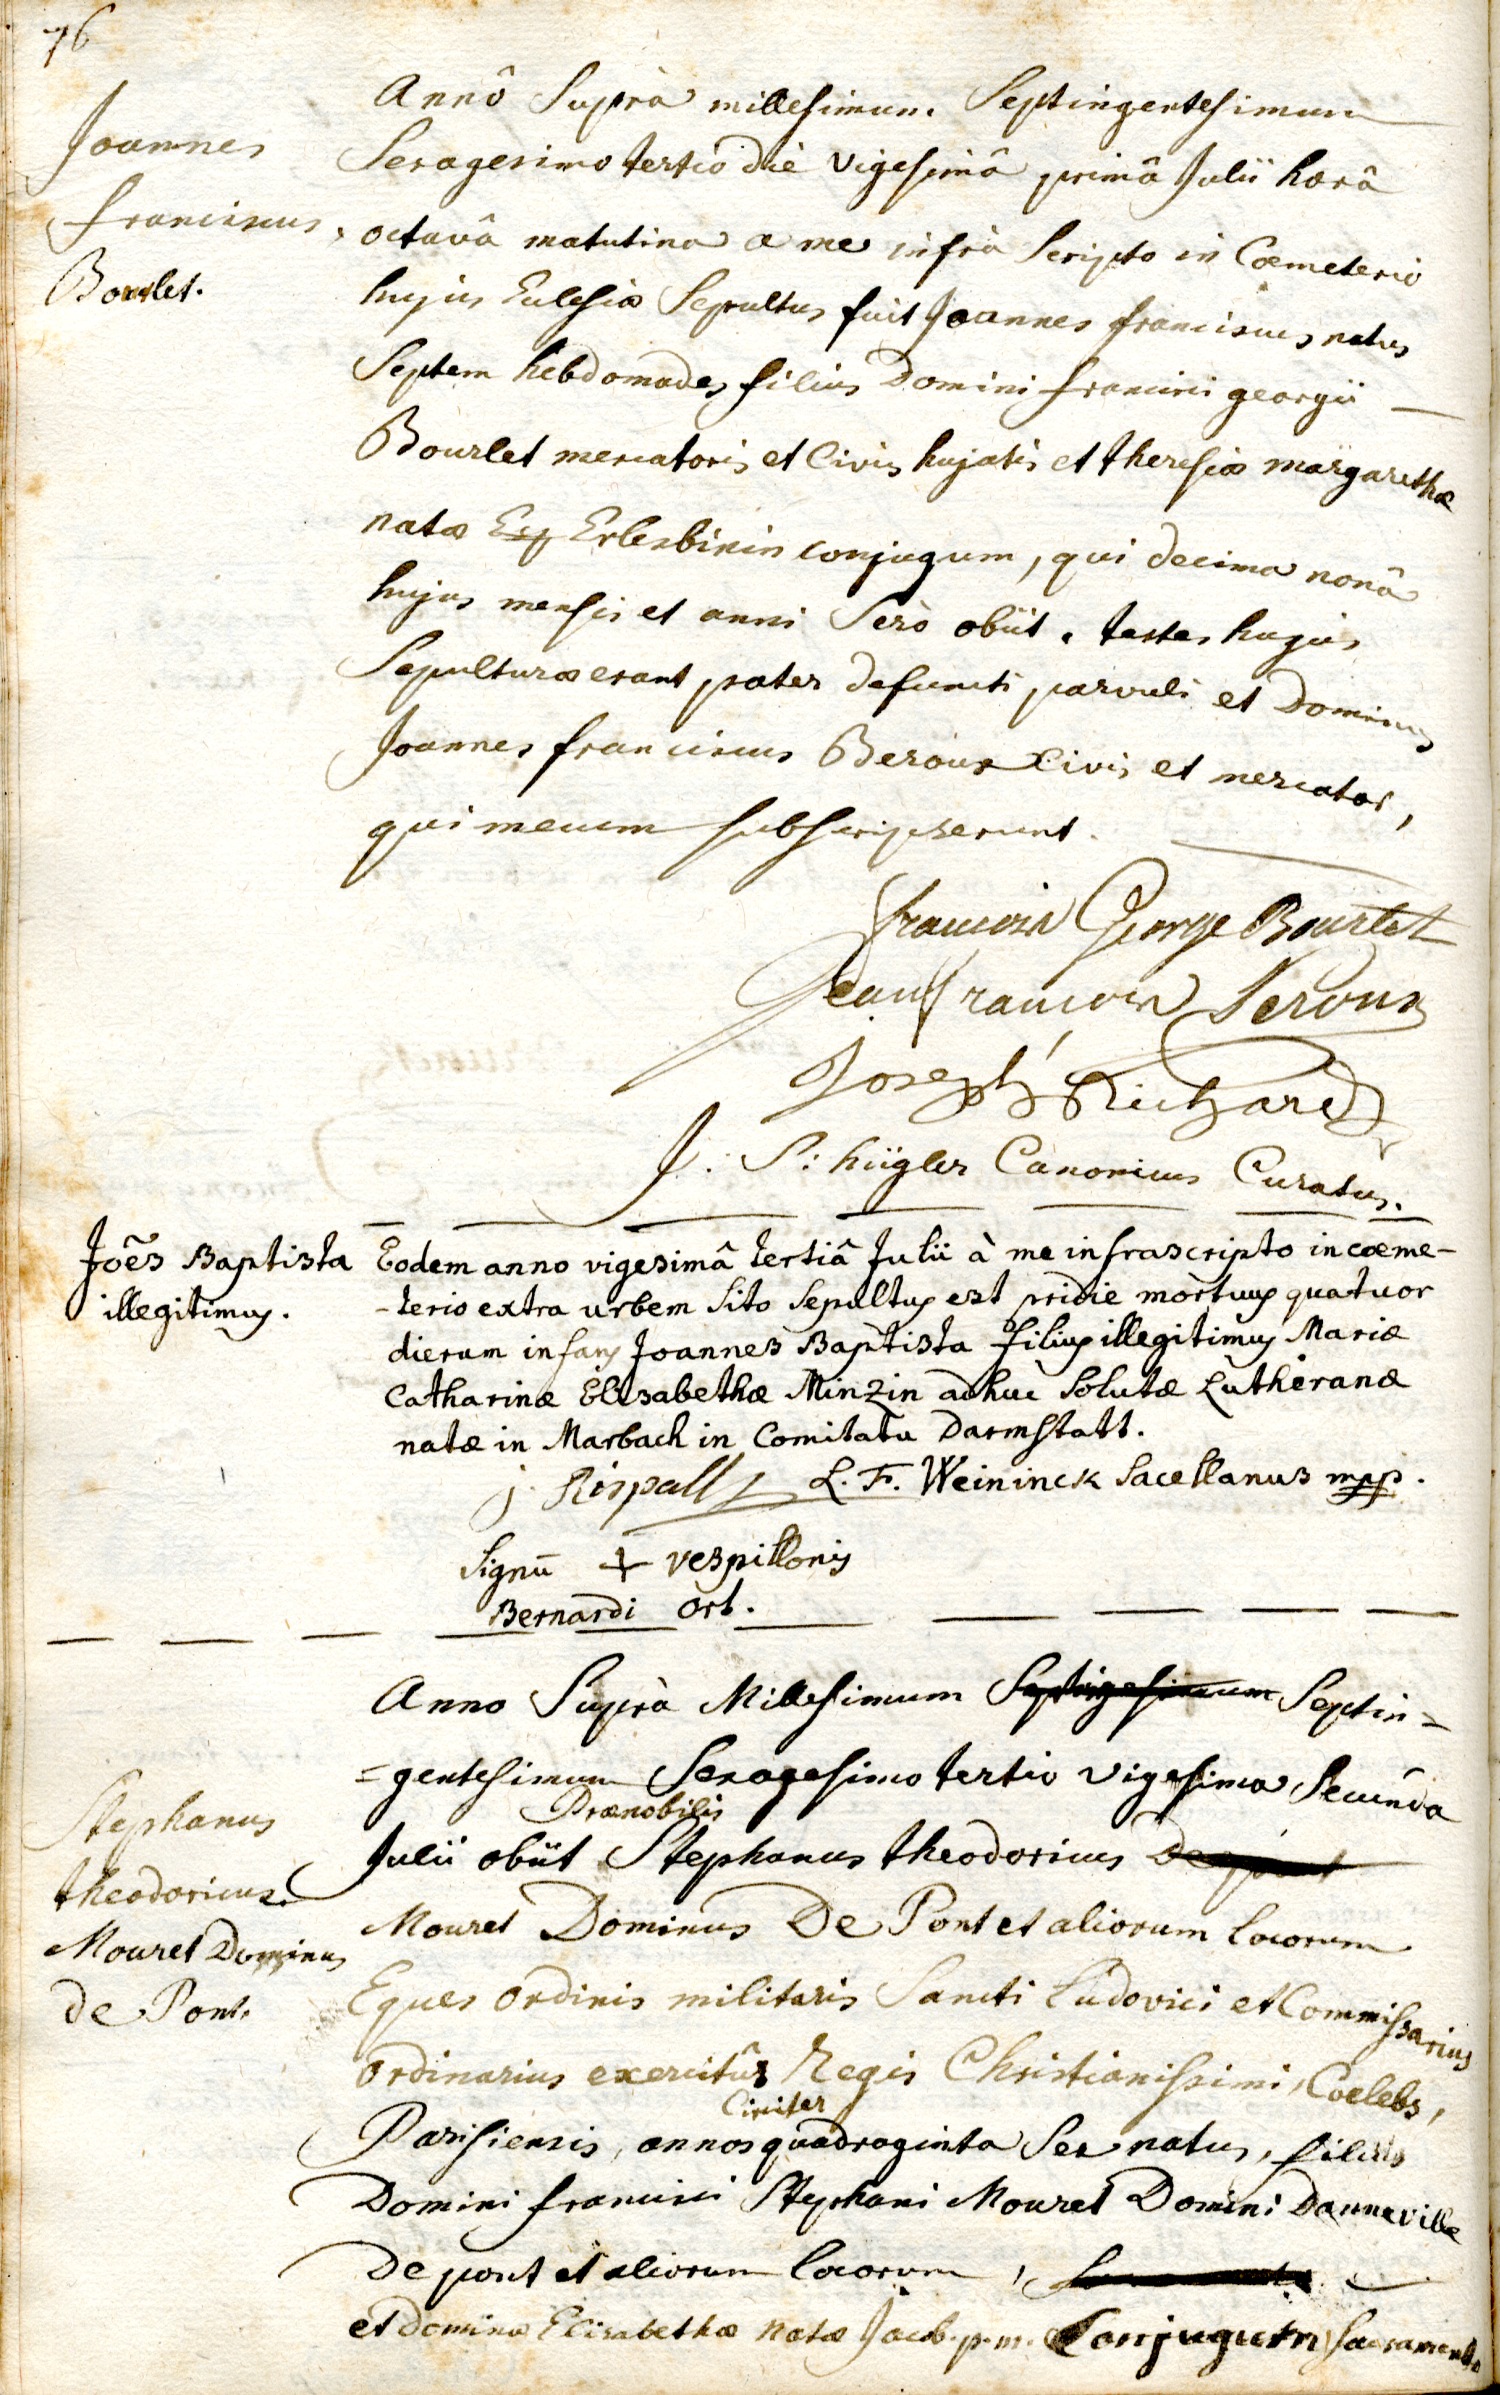 76
Joannes
franciscus
Bourlet.
Annô Suprà millesimum Septingentesimum
Sexagesimo tertio die vigesimâ primâ Julii horâ
octavâ matutina a me infrà Scripto in Cœmeterio
hujus Eclesiæ Sepultus fuit Joannes franciscus natus
Septem hebdomades filius Domini francisci georgii
Bourlet mercatoris et Civis hujatis et theresiæ margarethæ
natæ Erlesbinin conjugum, qui decima nonâ
hujus mensis et anni Serò obiit. testes hujus
Sepulturæ erant pater defuncti parvuli et Dominus
Joannes franciscus Beroux Civis et mercator,
qui mecum subscripserunt.
francois George Bourlet
Jean francois Seroux
Joseph Richard
J. S: hügler Canonicus Curatus.
Joẽs Baptista
illegitimus.
Eodem anno vigesimâ tertiâ Julii à me infrascripto in cœme-
-terio extra urbem Sito Sepultus est pridie mortuus quatuor
dierum infans Joannes Baptista filius illegitimus Mariæ
Catharinæ Elisabethæ Minzin adhuc Solutæ Lutheranæ
natæ in Marbach in Comitatu Darmstatt.
j. Rispall L. F. Weininck Sacellanus mpp.
Signũ + vespillonis
Bernardi Ort.
Stephanus
theodoricus
Mouret Dominus
de Pont.
Anno Suprà Millesimum Septingesimum Septin=
=gentesimum Sexagesimo tertio vigesima Secunda
Prænobilis
Julii obiit Stephanus theodoricus De pont
Mouret Dominus De Pont et aliorum locorum
Eques Ordinis militaris Sancti Ludovici et Commissarius
Ordinarius exercitûs Regis Christianissimi, Coelebs,
Circiter
Parisiensis, annos quadraginta Sex natus, filius
Domini francisci Stephani Mouret Domini Danneville
De pont et aliorum locorum,
et Dominæ Elisabethæ natæ Jacob. p. m. Conjugum Sacramentis